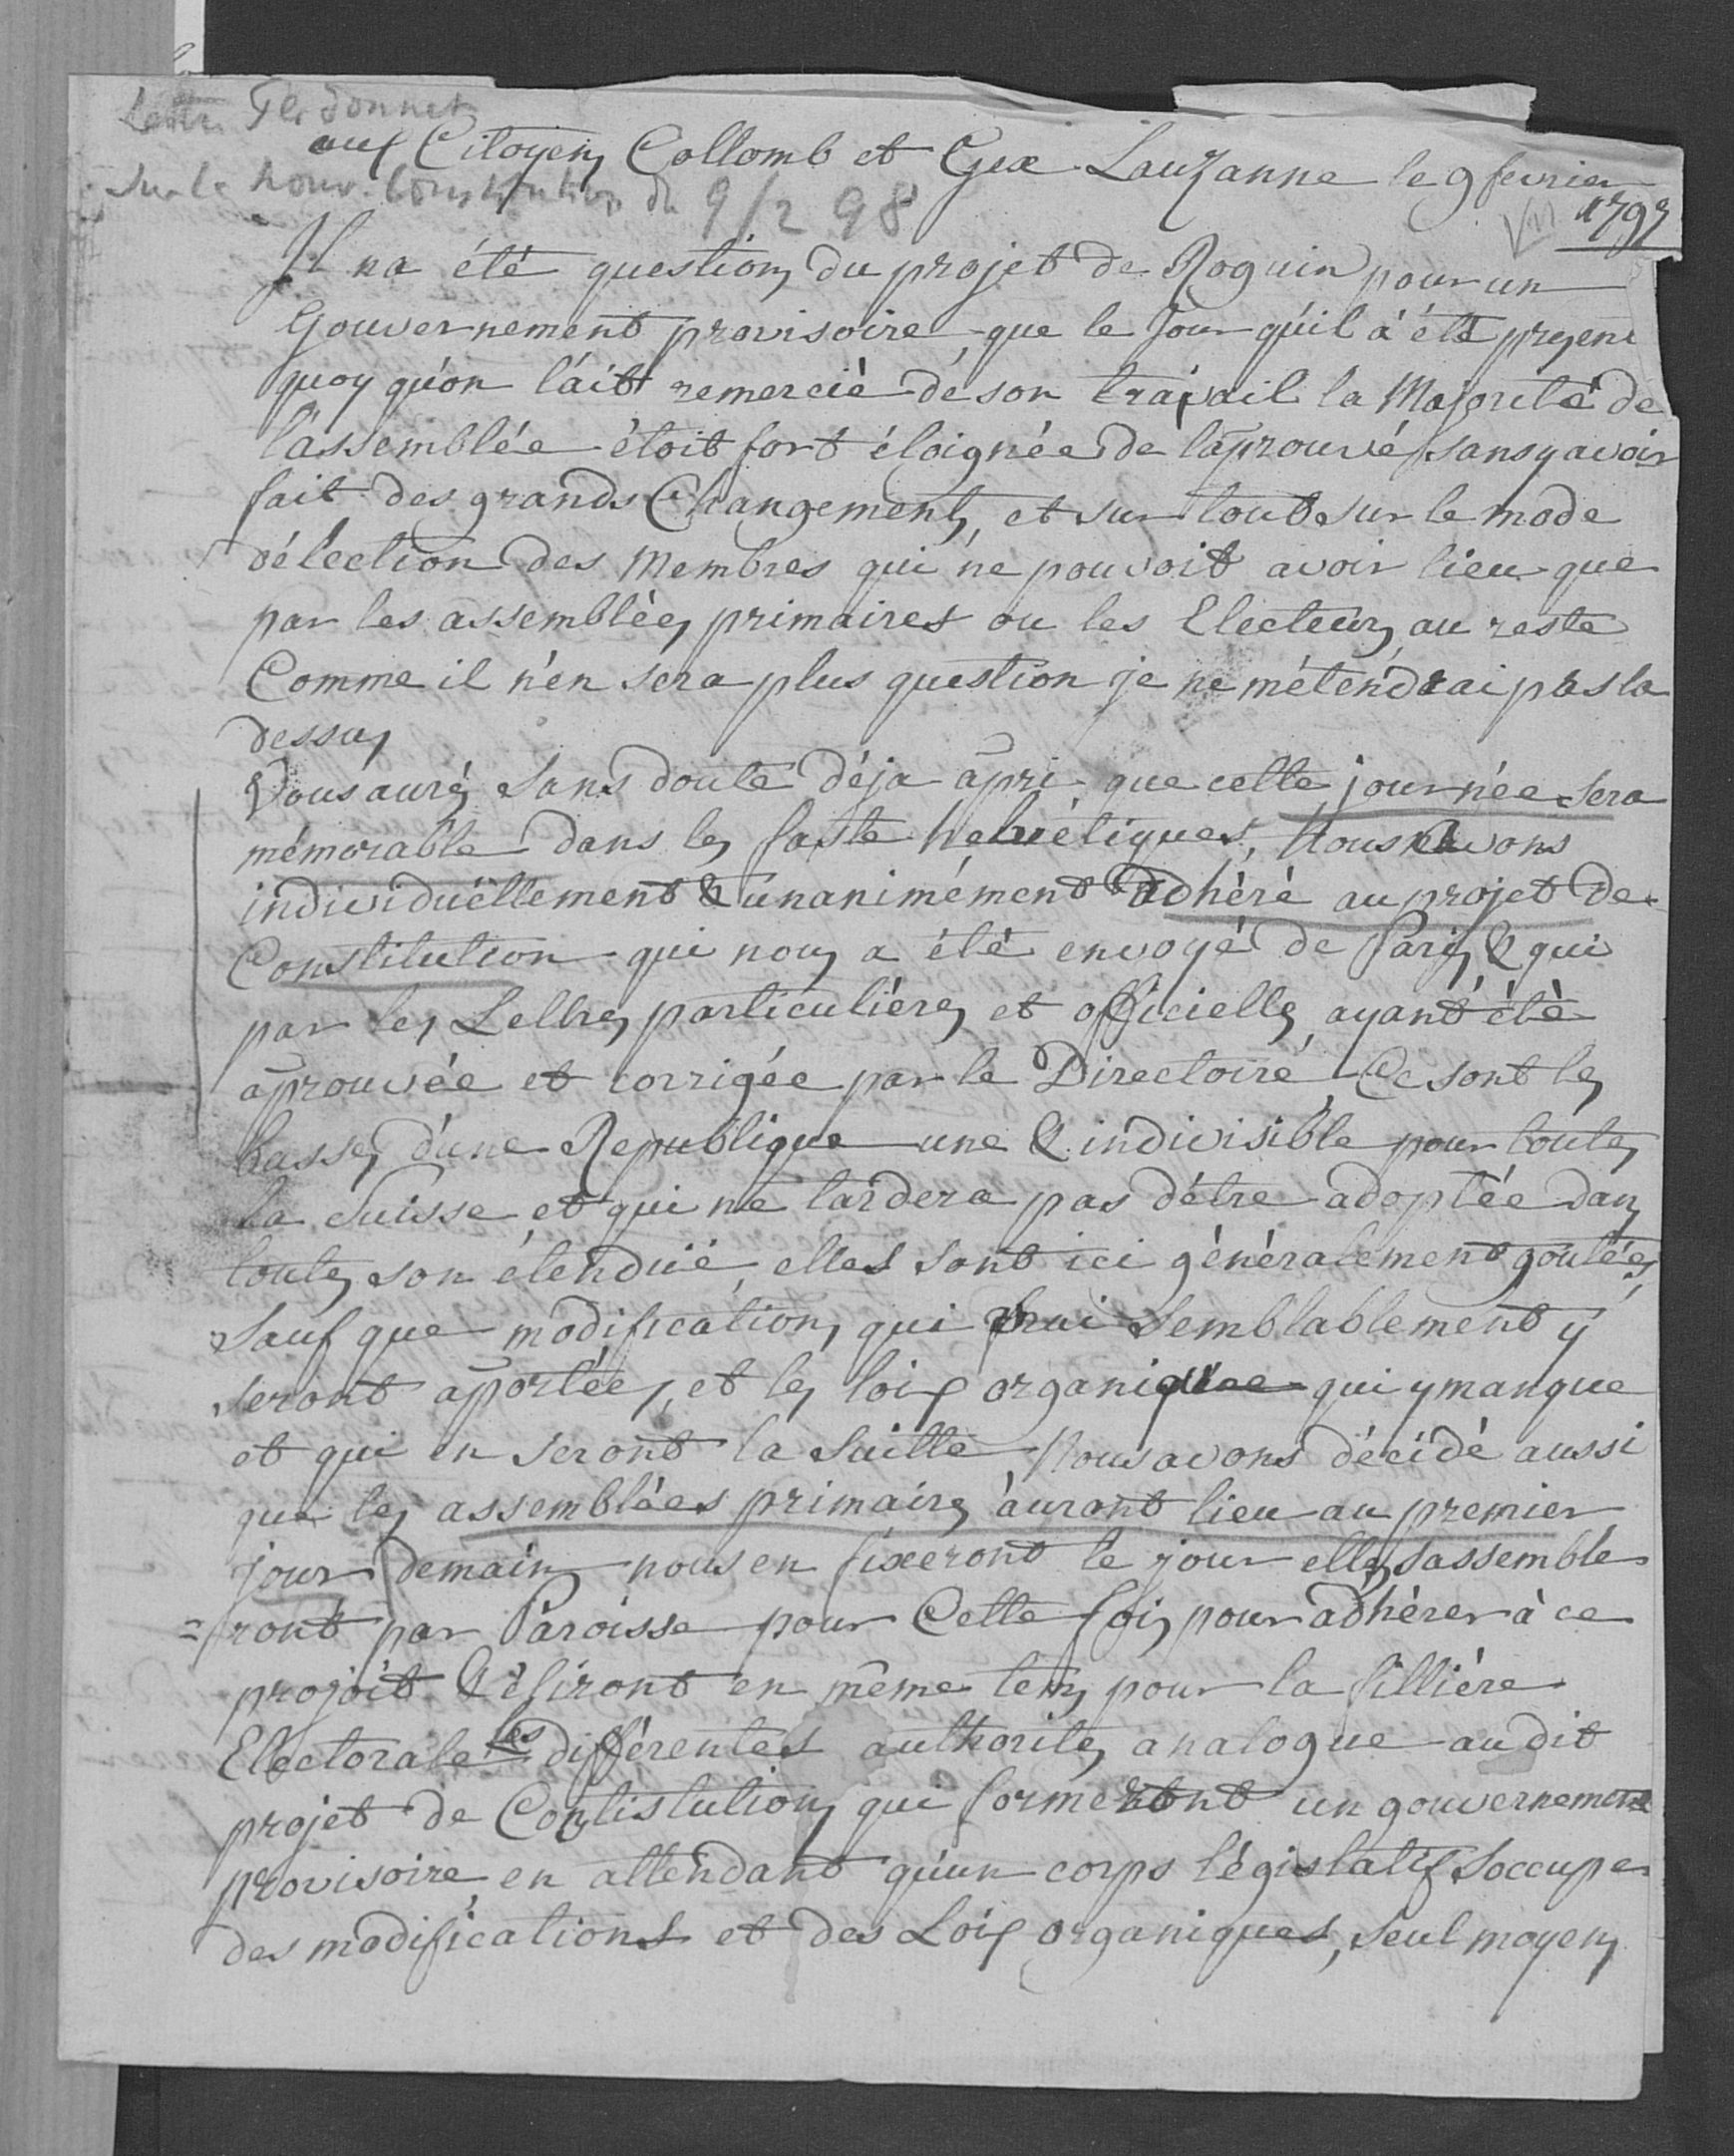 Lettre Perdonnet
aux Citoyens Collomb et Gex Lauzanne le 9 fevrier
sur la nouv. Constitution du 9/2 98
VIII 1797
Il na été question du projet de Roguin pour un
Gouvernement provisoire, que le Jour quil à été presenté
quoy qu'on l'áit remercié de son travail la Majorité de
l'assemblée étoit fort éloignée de l'aprouvé sans y avoir
fait des grands Changements, et sur tout sur le mode
délection des Membres qui ne pouvoit avoir lieu que
par les assemblées primaires ou les Electeurs, au reste
Comme il n'en sera plus question je ne m'étendrai pas la
dessus
Vous aurés sans doute déja apris que cette journée sera
mémorable dans les faste helvétiques, Nous avons
individuëllement & unanimément adhéré au projet de
Constitution qui nous a été envoyé de Paris & qui
par les Lettres particulières et officielles ayant été
aprouvée et corrigée par le Directoire, Ce sont les
basses d'une Republique une & indivisible pour toutes
la Suisse et qui ne tardera pas d'être adoptée dans
toutes son étenduë, elles sont ici généralement goutées,
Sauf que modifications qui vrai semblablement y
seront aportées, et les loix organique qui y manque
et qui en seront la Suitte, Nous avons décidé aussi
que les assemblées primaires auront lieu au premier
jour demain nous en fixeront le jour elles sassemble
=ront par Paroisse pour Cette fois pour adhérer à ce
projèt & éliront en même tems pour la fillière
Electorale les différentes authorités analogue au dit
projet de Constistution qui formeront un gouvernement
provisoire en attendant quun corps législatif soccupe
des modifications et des Loix organiques, seul moyens